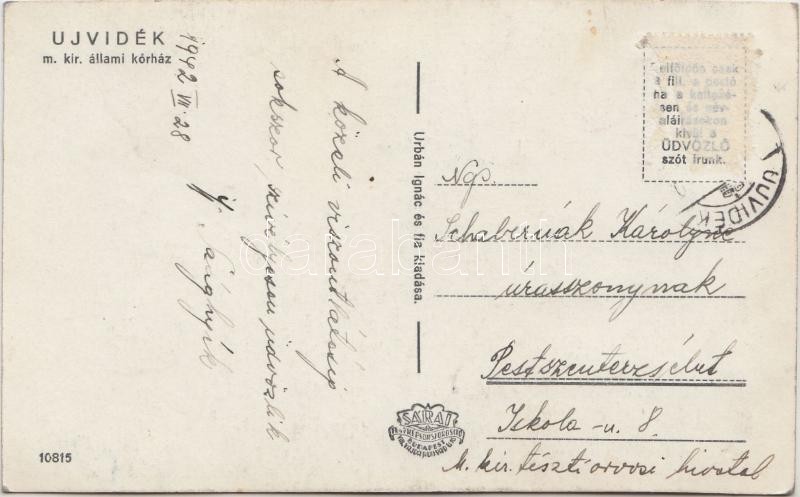 UJVIDÉK
m. kir. állami kórház
1942 VII. 28
A közeli viszontlátásig
sokszor, szívélyesen üdvözlik
ifj.
Urbán Ignác és fia kiadása.
Belföldön csak
fill. a portó
ha a keltezé-
sen és név-
aláírásokon
kívül 5
ÜDVÖZLŐ
szót írunk.
UJVIDÉK
Ngs.
Schabernák Károlyné
úrasszonynak
Pestszenterzsébet
Iskola-u. 8.
M. kir. tiszti orvosi hivatal
SÁRAI
BUDAPEST
10815
darabanth